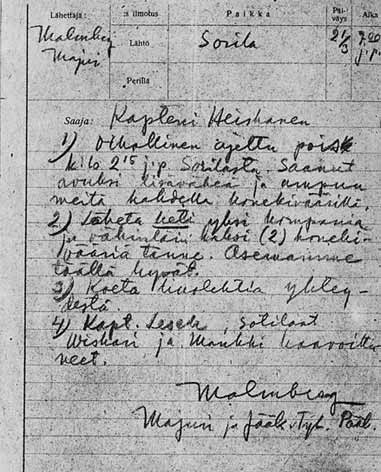 Lähettäjä:
:s ilmoitus
Paikka
Päi-
väys
Aika
Malmberg
Majuri
Lähtö
Sorila
21/3
7.00
j.p.
Perillä
Saaja: Kapteeni Heiskanen
1) Vihollinen ajettu poisk
klo 2 15 j.p. Sorilasta. Saanut
avuksi lisäväkeä ja ampuu
meitä kahdella konekiväärillä.
2) Läheta heti yksi komppania
ja vähintäin kaksi (2) koneki-
vääriä tänne. Asemamme
täällä hyvät.
3) Koeta huolehtia yhtey-
destä.
4) Kapt. , sotilaat
ja haavoittu-
neet.
Malmberg
Majuri ja Jääk. Pääl.